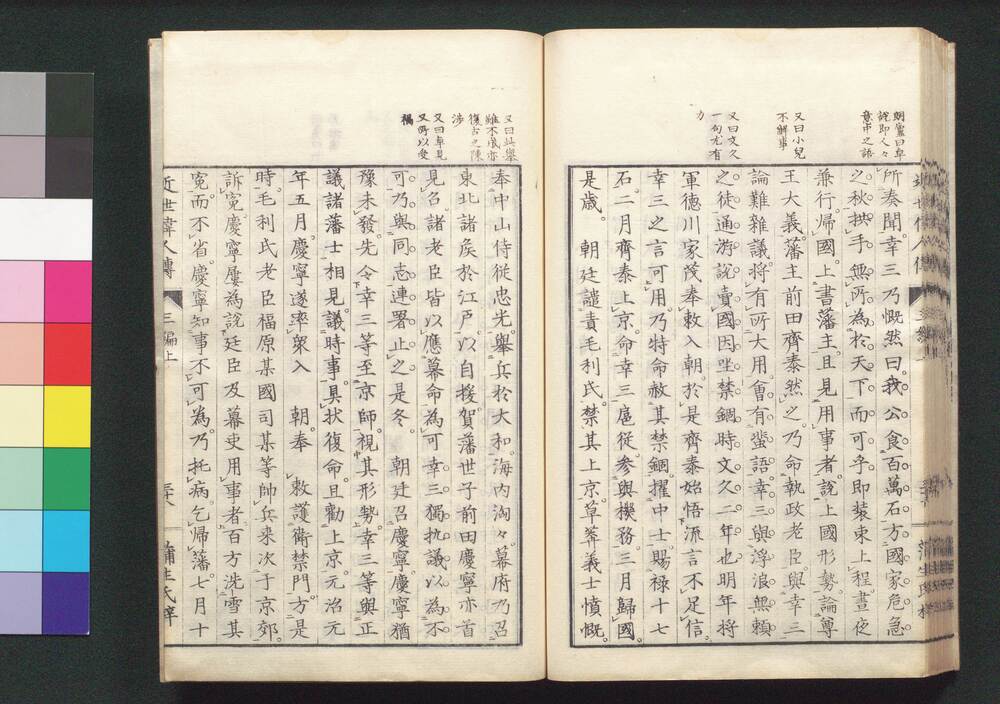 朗廬曰卓
說即人々
意中之語
又曰小兒
不解事
又曰文久
一句尤有
力
所奏聞幸三乃慨然曰我公食百萬石方國家危急
之秋拱手無所為於天下而可乎即裝束上程晝夜
兼行歸國上書藩主且見用事者說上國形勢論尊
王大義藩主前田齊泰然之乃命執政老臣與幸三
論難雜議將有所大用會有蜚語幸三與浮浪無賴
之徒通游說賣國因坐禁錮時文久二年也明年將
軍德川家茂奉敕入朝於是齊泰始悟流言不足信
幸三之言可用乃特命赦其禁錮擢中士賜祿十七
石二月齊泰上京命幸三扈從参與機務三月歸國
是歲　朝廷譴責毛利氏禁其上京草莽義士憤慨
又曰此舉
雖不成亦
復古之陳
涉
又曰卓見
又曰所以受
禍
奉中山侍從忠光舉兵於大和海内洶々幕府乃召
東北諸矦於江戸以自援賀藩世子前田慶寧亦首
見召諸老臣皆以應幕命為可幸三獨抗議以為不
可乃與同志連署止之是冬　朝廷召慶寧慶寧猶
豫未發先令幸三等至京師視其形勢幸三等與正
議諸藩士相見議時事具狀復命且勸上京元治元
年五月慶寧遂率衆入　朝奉　敕護衛禁門方是
時毛利氏老臣福原某國司某等帥兵来次于京郊
訴寃慶寧屢為說廷臣及幕吏用事者百方洗雪其
寃而不省慶寧知事不可為乃托病乞歸藩七月十
近世偉人傳
三編上
三十八
蒲生氏梓